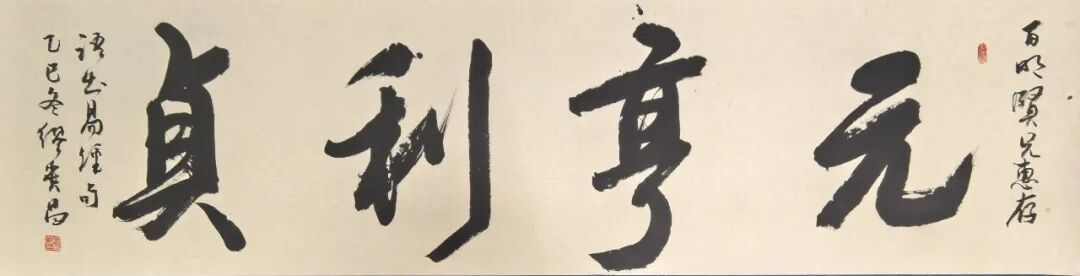 百明賢兄惠存
元亨利貞
語出易經句
乙巳冬繆昌